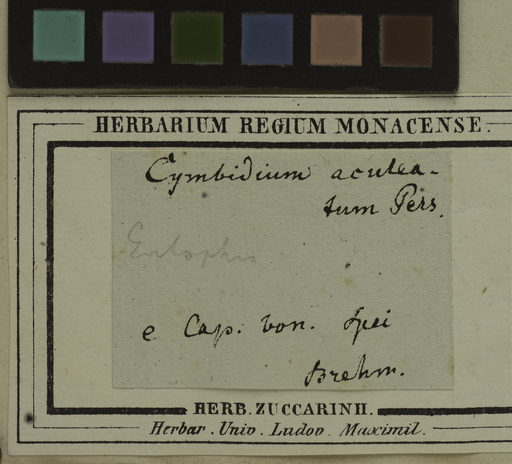 HERBARIUM REGIUM MONACENSE.
Cymbidium aculea-
tum Pers.
Eulophia
e Cap. bon. Spei
Brehm.
HERB. ZUCCARINII.
Herbar. Univ. Ludov. Maximil.